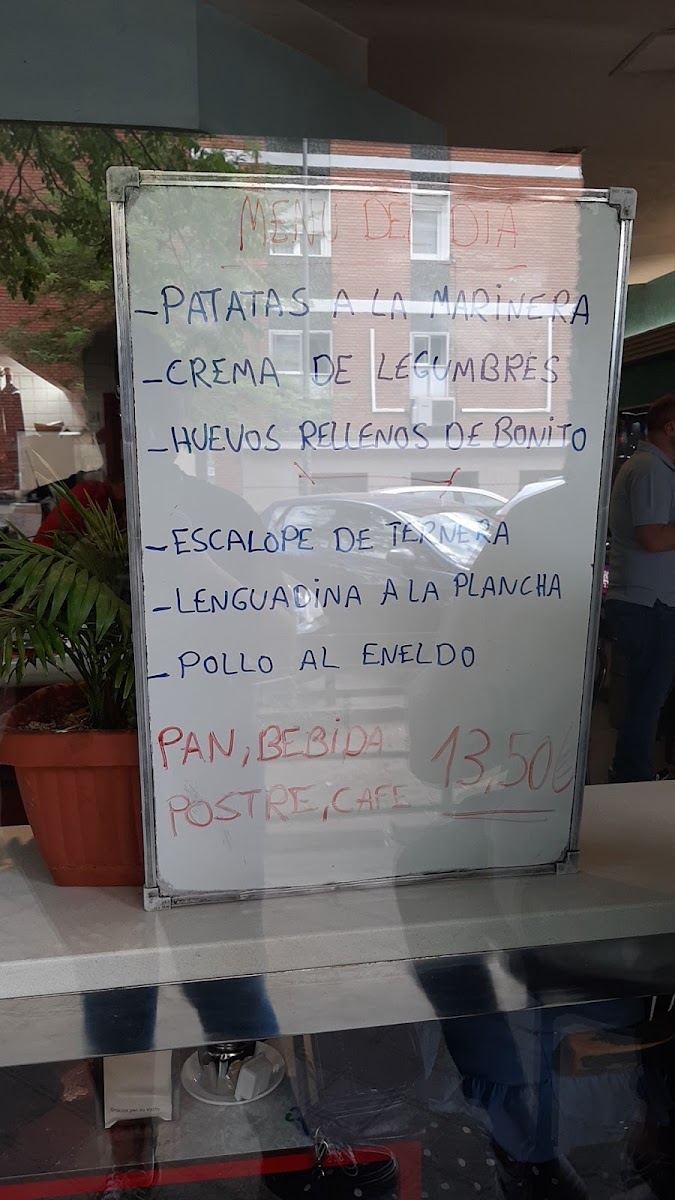 MENU DEL DIA
-PATATAS A LA MARINERA
-CREMA DE LEGUMBRES
-HUEVOS RELLENOS DE BONITO
-ESCALOPE DE TERNERA
-LENGUADINA A LA PLANCHA
-POLLO AL ENELDO
PAN, BEBIDA
POSTRE, CAFE 13,50€